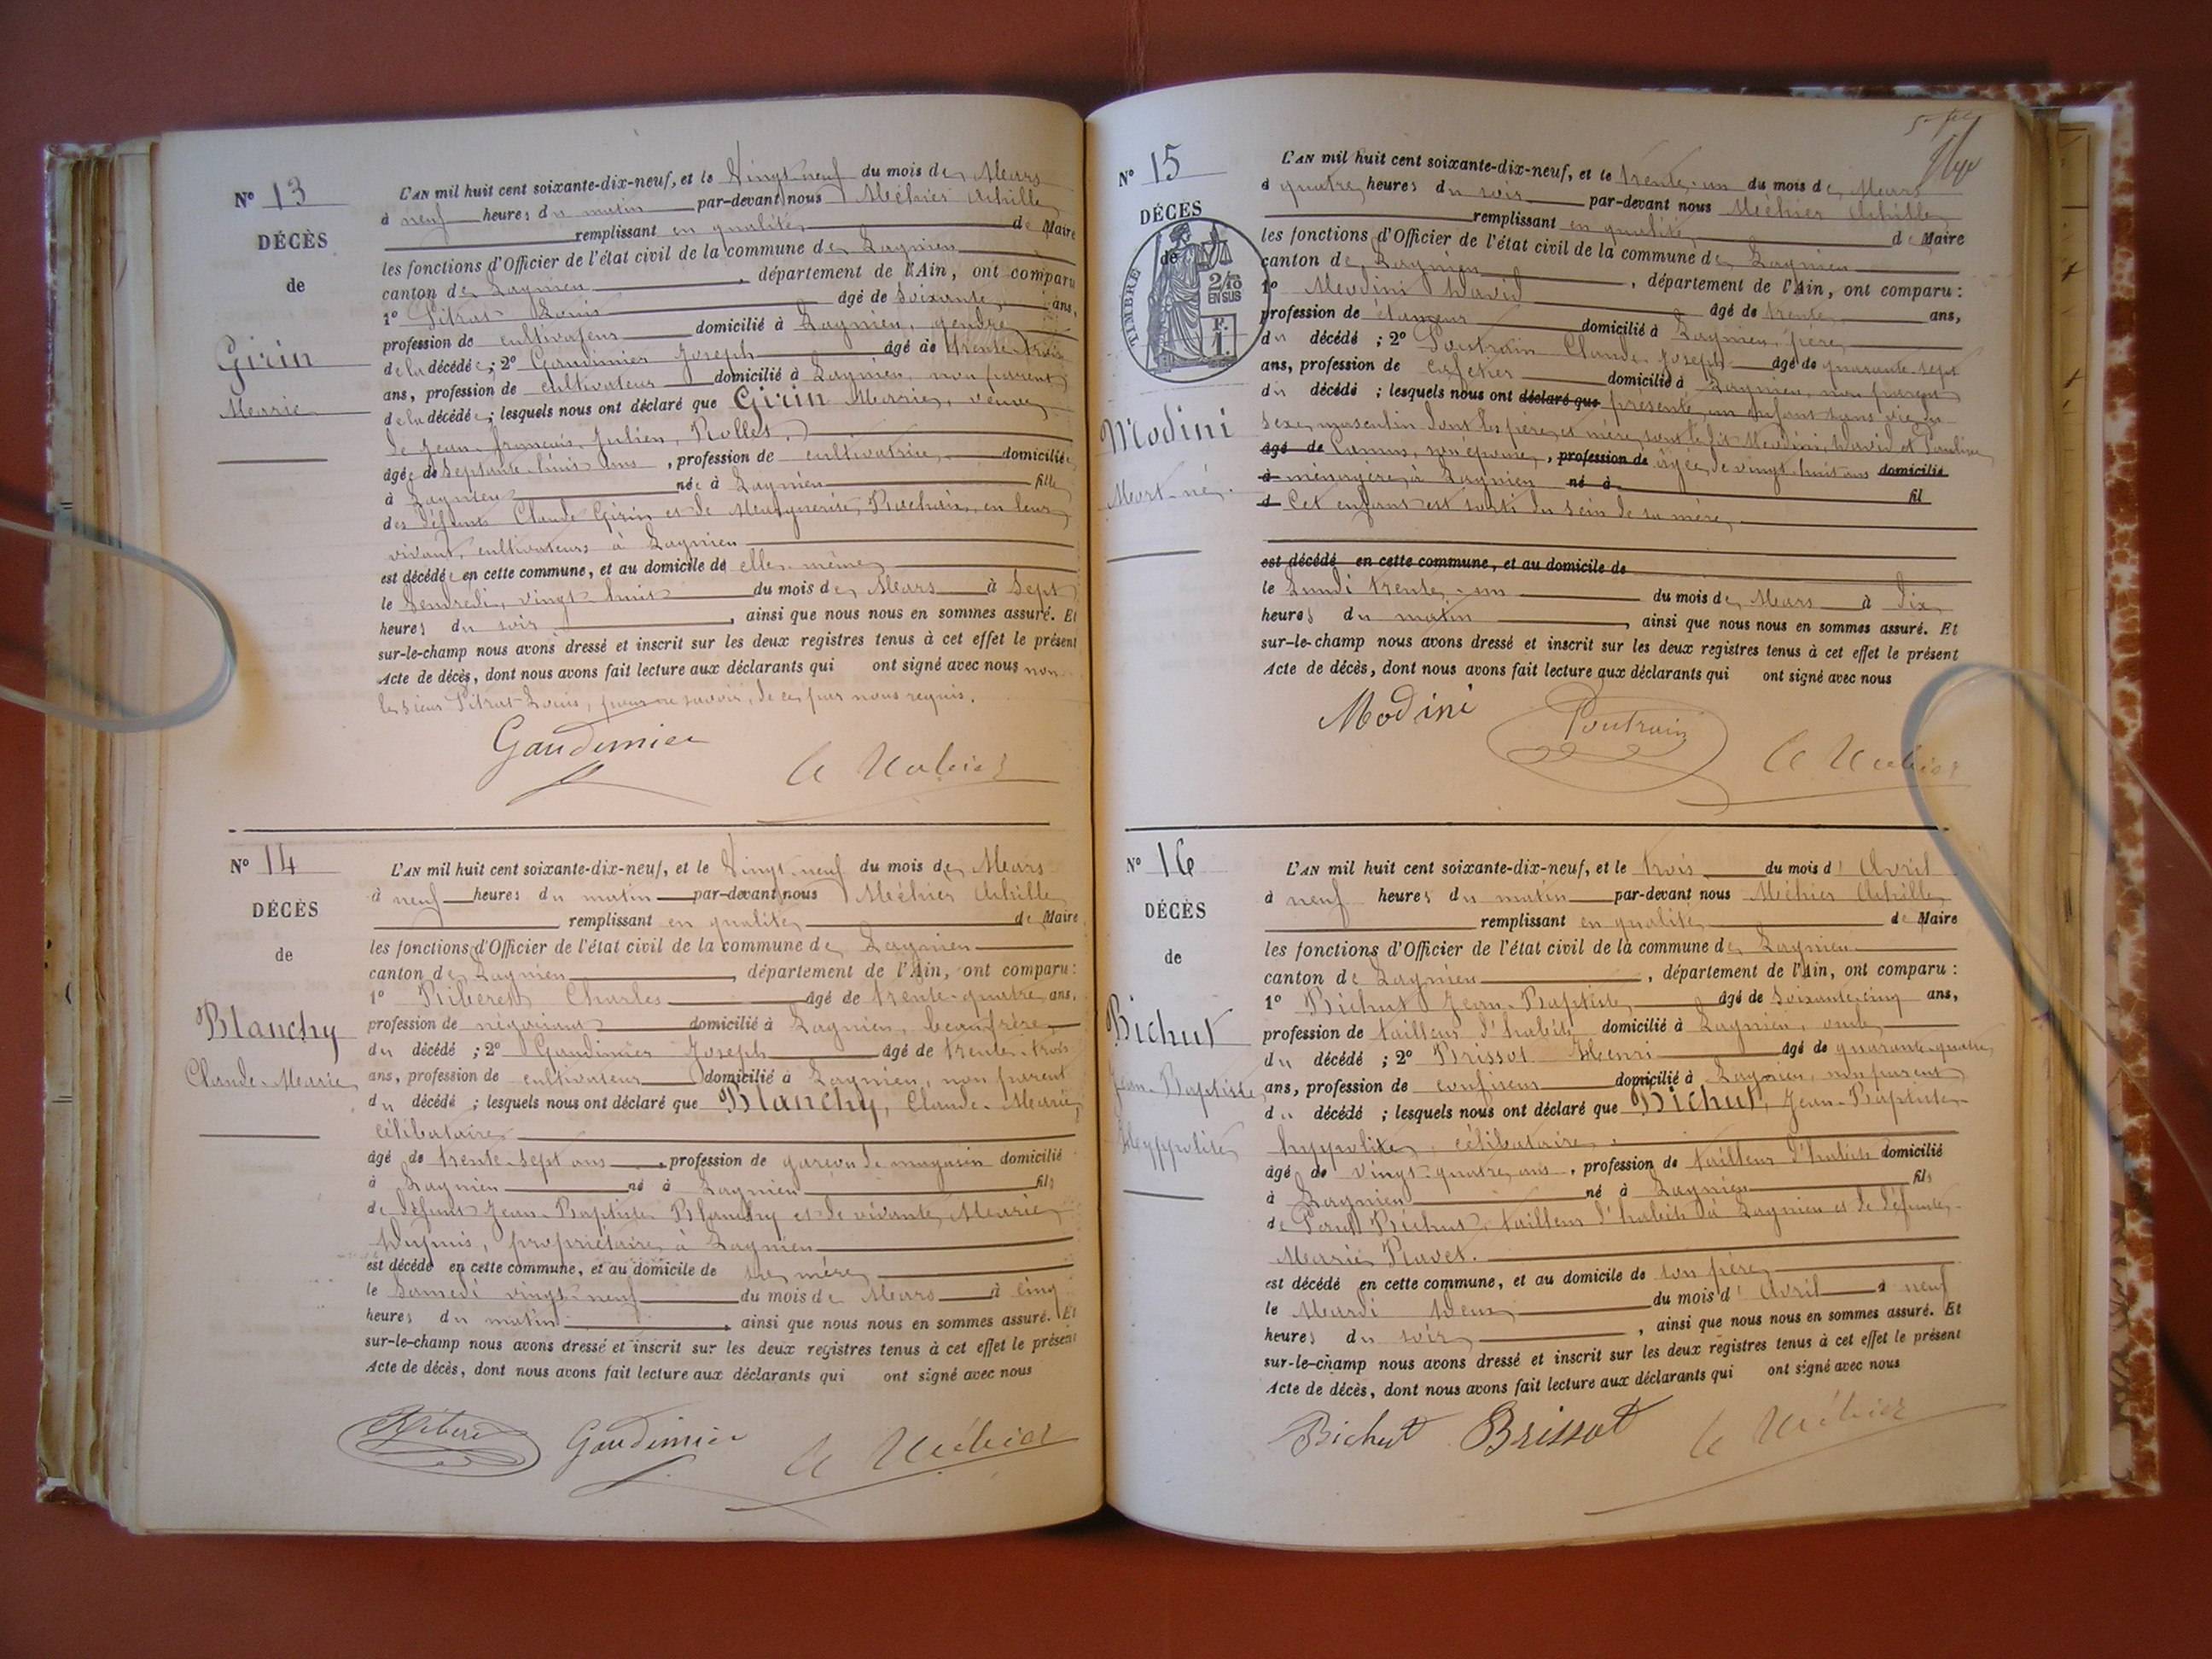 N° 13
DÉCÈS
de
Girin
Marie
L'AN mil huit cent soixante-dix-neuf, et le Vingt-neuf du mois de Mars
à neuf heures du matin par-devant nous Méhier Achille
remplissant en qualité de Maire
les fonctions d'Officier de l'état civil de la commune de Lagnieu
canton de Lagnieu, département de l'Ain, ont comparu
1° Pitrat Louis âgé de soixante ans,
profession de cultivateur domicilié à Lagnieu, gendre
de la décédée; 2° Gaudimier Joseph âgé de trente-trois
ans, profession de cultivateur domicilié à Lagnieu, non parent
de la décédée; lesquels nous ont déclaré que Girin Marie, veuve
de Jean-François-Julien Rollet,
âgée de Septante-huit ans, profession de cultivatrice, domiciliée
à Lagnieu née à Lagnieu fille
des défunts Claude Girin et de Marguerite, en leur
vivant, cultivateurs à Lagnieu
est décédée en cette commune, et au domicile de elle-même
le Vendredi, vingt-huit du mois de Mars à Sept
heures du soir, ainsi que nous nous en sommes assuré. Et
sur-le-champ nous avons dressé et inscrit sur les deux registres tenus à cet effet le présent
Acte de décès, dont nous avons fait lecture aux déclarants qui ont signé avec nous non
le sieur Pitrat Louis, pour ne savoir, de ce par nous requis.
Gaudimier
A Méhier
N° 14
DÉCÈS
de
Blanchy
Claude-Marie
L'AN mil huit cent soixante-dix-neuf, et le Vingt-neuf du mois de Mars
à neuf heures du matin par-devant nous Méhier Achille
remplissant en qualité de Maire
les fonctions d'Officier de l'état civil de la commune de Lagnieu
canton de Lagnieu, département de l'Ain, ont comparu :
1° Charles âgé de trente-quatre ans,
profession de négociant domicilié à Lagnieu, beau-frère
du décédé ; 2° Gaudimier Joseph âgé de trente-trois
ans, profession de cultivateur domicilié à Lagnieu, non parent
du décédé ; lesquels nous ont déclaré que Blanchy, Claude-Marie,
célibataire
âgé de trente-sept ans, profession de garçon de magasin domicilié
à Lagnieu né à Lagnieu fils
de défunt Jean-Baptiste Blanchy et de vivante Marie
Dupuis, propriétaire à Lagnieu
est décédé en cette commune, et au domicile de sa mère
le Samedi vingt-neuf du mois de Mars à cinq
heures du matin, ainsi que nous nous en sommes assuré. Et
sur-le-champ nous avons dressé et inscrit sur les deux registres tenus à cet effet le présent
Acte de décès, dont nous avons fait lecture aux déclarants qui ont signé avec nous
Gaudimier
A Méhier
N° 15
DÉCÈS
de
TIMBRE
2/10
EN SUS
F.
1.
Modini
Mort-né.
L'AN mil huit cent soixante-dix-neuf, et le trente-un du mois de Mars
à quatre heures du soir par-devant nous Méhier Achille
remplissant en qualité de Maire
les fonctions d'Officier de l'état civil de la commune de Lagnieu
canton de Lagnieu, département de l'Ain, ont comparu :
1° Modini David âgé de trente ans,
profession de étameur domicilié à Lagnieu, père
du décédé ; 2° Poutrain Claude-Joseph âgé de quarante-sept
ans, profession de domicilié à Lagnieu, non parent
du décédé ; lesquels nous ont déclaré que présenté un enfant sans vie, du
sexe masculin dont les père et mère sont le dit Modini David et Pauline
âgé de Camus, son épouse, profession de âgée de vingt-huit ans domicilié
à ménagère, à Lagnieu né à fil
d Cet enfant est sorti du sein de sa mère,
est décédé en cette commune, et au domicile de
le Lundi trente-un du mois de Mars à dix
heures du matin, ainsi que nous nous en sommes assuré. Et
sur-le-champ nous avons dressé et inscrit sur les deux registres tenus à cet effet le présent
Acte de décès, dont nous avons fait lecture aux déclarants qui ont signé avec nous
Modini
Poutrain
A Méhier
N° 16
DÉCÈS
de
Bichut
Jean-Baptiste
Hyppolite
L'AN mil huit cent soixante-dix-neuf, et le trois du mois d'Avril
à neuf heures du matin par-devant nous Méhier Achille
remplissant en qualité de Maire
les fonctions d'Officier de l'état civil de la commune de Lagnieu
canton de Lagnieu, département de l'Ain, ont comparu :
1° Bichut Jean-Baptiste âgé de soixante-cinq ans,
profession de tailleur d'habits domicilié à Lagnieu, oncle
du décédé ; 2° Brissot Henri âgé de quarante-quatre
ans, profession de confiseur domicilié à Lagnieu, non parent
du décédé ; lesquels nous ont déclaré que Bichut, Jean-Baptiste
hyppolite, célibataire,
âgé de vingt-quatre ans, profession de tailleur d'habits domicilié
à Lagnieu né à Lagnieu fils
de Bichut, tailleur d'habits à Lagnieu et de défunte
Marie Ravet.
est décédé en cette commune, et au domicile de son père
le Mardi deux du mois d'Avril à neuf
heures du soir, ainsi que nous nous en sommes assuré. Et
sur-le-champ nous avons dressé et inscrit sur les deux registres tenus à cet effet le présent
Acte de décès, dont nous avons fait lecture aux déclarants qui ont signé avec nous
Bichut Brissot
A Méhier